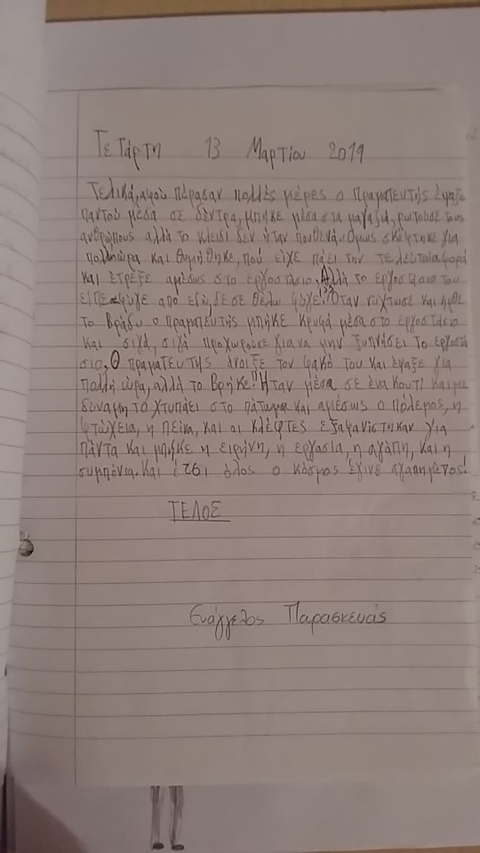 Τετάρτη 13 Μαρτίου 2019
Τελικά, αφού πέρασαν πολλές μέρες ο πραματευτής έψαξε
παντού μέσα σε δέντρα, μπήκε μέσα στα μαγαζιά, ρωτούσε τους
ανθρώπους αλλά το κλειδί δεν ήταν πουθενά. Όμως σκέφτηκε για
πολλή ώρα και θυμήθηκε, που είχε πάει την τελευταία φορά
και έτρεξε αμέσως στο εργοστάσιο. Αλλά το εργοστάσιο του
είπε "φύγε από εδώ, δε σε θέλω φύγε!" Όταν νύχτωσε και ήρθε
το βράδυ ο πραματευτής μπήκε κρυφά μέσα στο εργοστάσιο
και σιγά, σιγά προχωρούσε για να μην ξυπνήσει το εργοστά
σιο. Ο πραματευτής άνοιξε τον φακό του και έψαξε για
πολλή ώρα, αλλά το βρήκε! Ήταν μέσα σε ένα κουτί και με
δύναμη το χτυπάει στο πάτωμα και αμέσως ο πόλεμος, η
φτώχεια, η πείνα, και οι κλέφτες εξαφανίστηκαν για
πάντα και μπήκε η ειρήνη, η εργασία, η αγάπη, και η
συμπόνια. Και έτσι όλος ο κόσμος έγινε αγαπημένος!
ΤΕΛΟΣ
Ευάγγελος Παρασκευάς